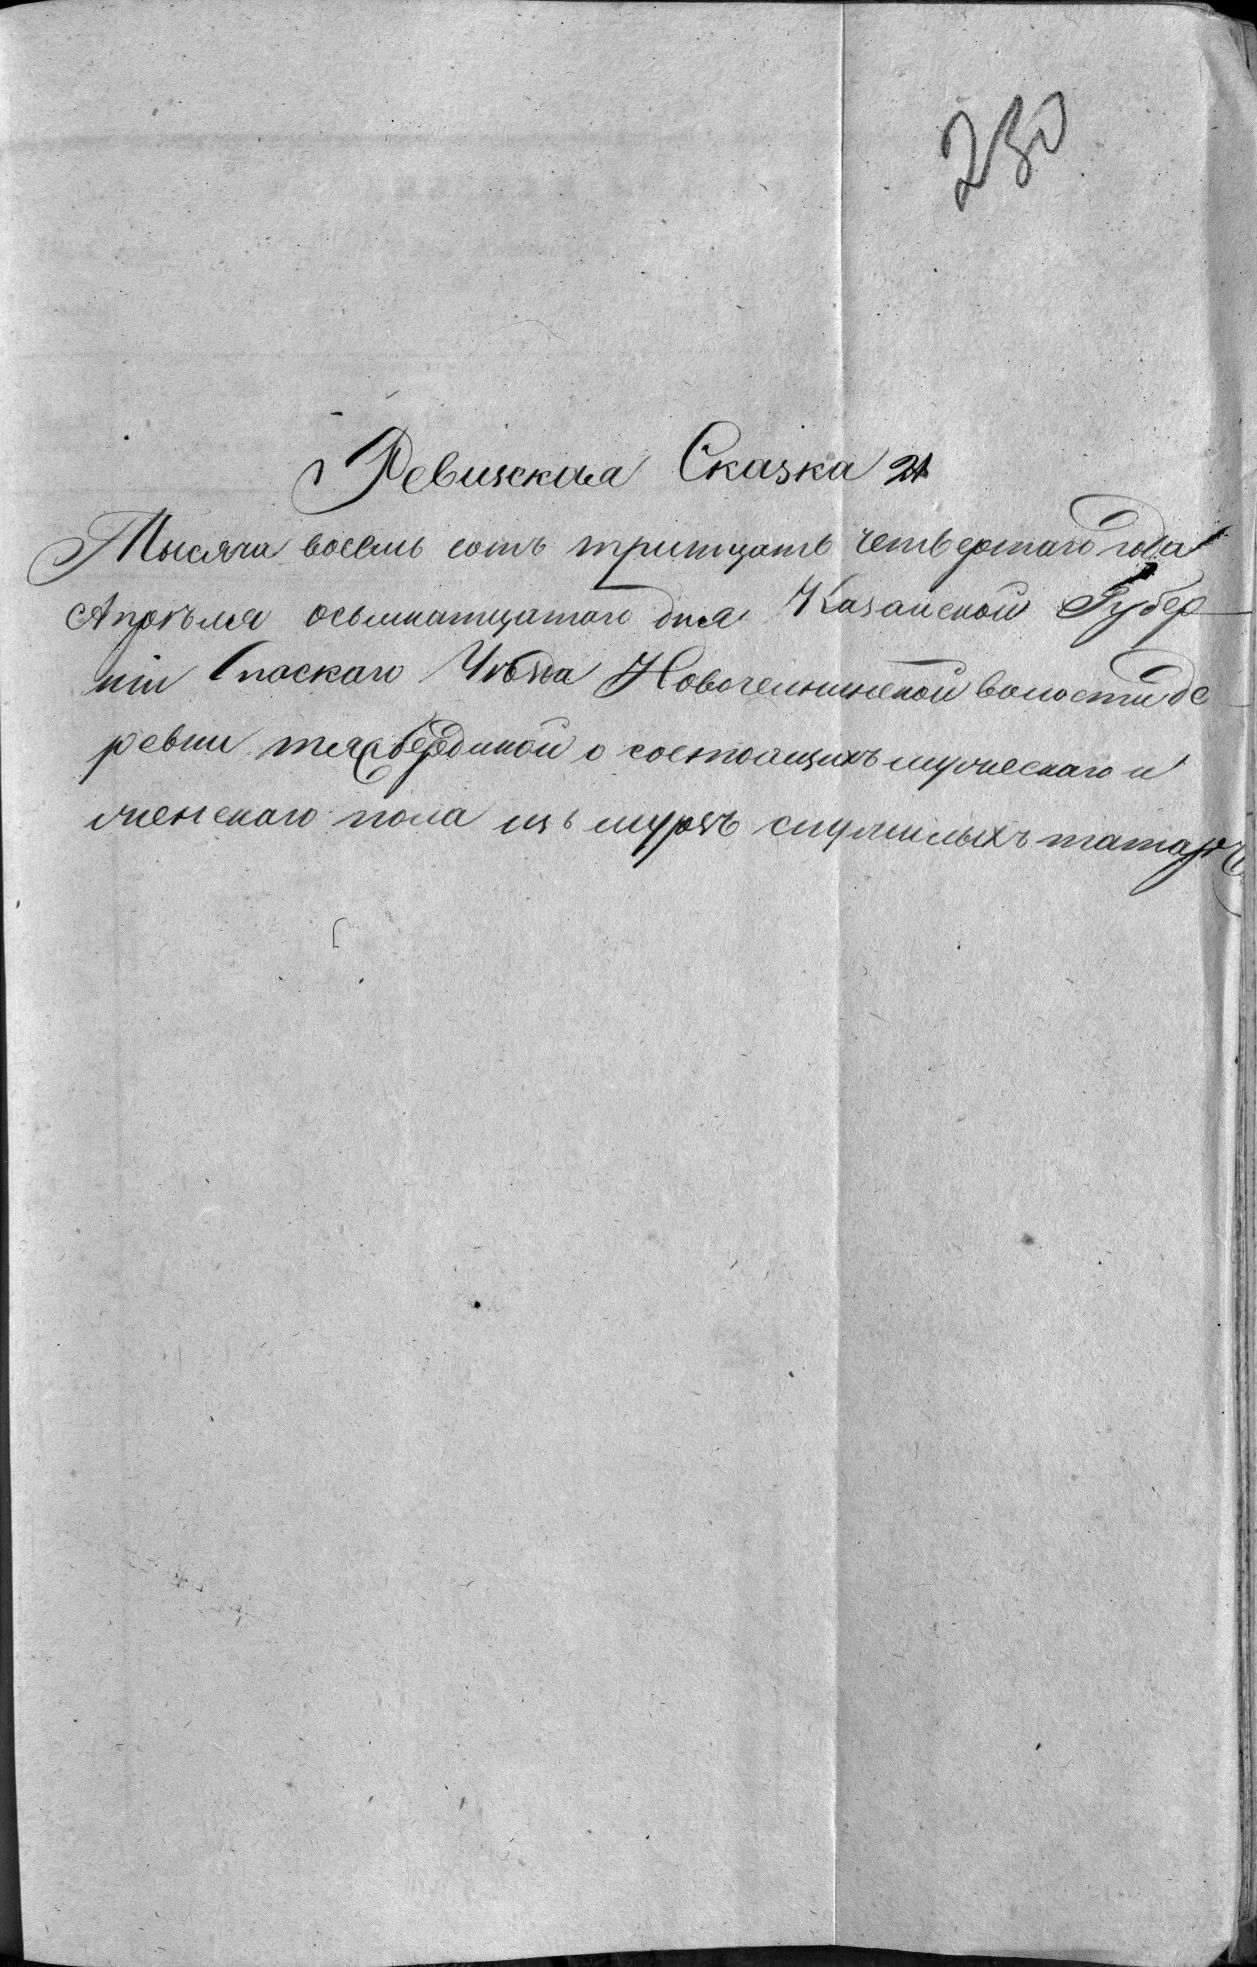 230
Ревизская Сказка 21
Тысяча восемь сотъ тритцать четвертаго года
Апрѣля осьмнатцатаго дня Казанской Губер
ніи Спаскаго Уѣзда Новочелнинской волости де
ревни о состоящихъ мужескаго и
женскаго пола изъ мурзъ служилыхъ татаръ